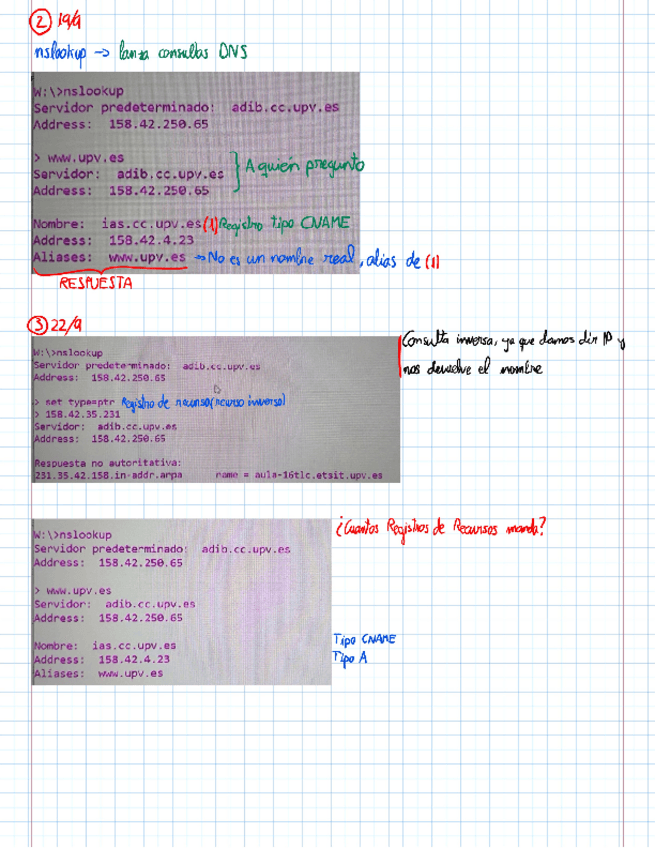 ② 19/9
nslookup → lanza consultas DNS
W:\>nslookup
Servidor predeterminado:  adib.cc.upv.es
Address:  158.42.250.65
> www.upv.es
Servidor:  adib.cc.upv.es
Address:  158.42.250.65
A quien pregunto
Nombre:  ias.cc.upv.es (1) Registro tipo CNAME
Address:  158.42.4.23
Aliases:  www.upv.es → No es un nombre real, alias de (1)
RESPUESTA
③ 22/9
Consulta inversa, ya que damos dir IP y
nos devuelve el nombre
W:\>nslookup
Servidor predeterminado:  adib.cc.upv.es
Address:  158.42.250.65
> set type=ptr Registro de recurso (recurso inverso)
> 158.42.35.231
Servidor:  adib.cc.upv.es
Address:  158.42.250.65
Respuesta no autoritativa:
231.35.42.158.in-addr.arpa      name = aula-16tlc.etsit.upv.es
¿Cuantos Registros de Recursos manda?
W:\>nslookup
Servidor predeterminado:  adib.cc.upv.es
Address:  158.42.250.65
> www.upv.es
Servidor:  adib.cc.upv.es
Address:  158.42.250.65
Nombre:  ias.cc.upv.es
Address:  158.42.4.23
Aliases:  www.upv.es
Tipo CNAME
Tipo A